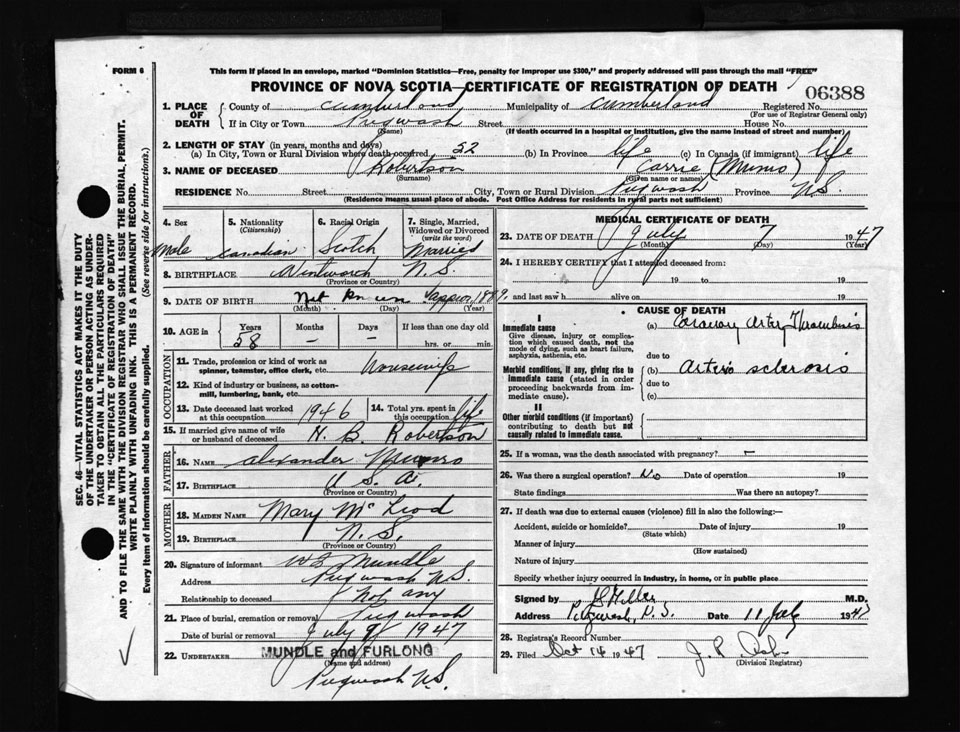 FORM 6
This form if placed in an envelope, marked "Dominion Statistics—Free, penalty for improper use $300," and properly addressed will pass through the mail "FREE"
PROVINCE OF NOVA SCOTIA—CERTIFICATE OF REGISTRATION OF DEATH
06388
1. PLACE OF DEATH
County of Cumberland Municipality of Cumberland Registered No.
(For use of Registrar General only)
If in City or Town Pugwash Street House No.
(Name) (If death occurred in a hospital or institution, give the name instead of street and number)
2. LENGTH OF STAY (in years, months and days)
(a) In City, Town or Rural Division where death occurred 52 (b) In Province life (c) In Canada (if immigrant) life
3. NAME OF DECEASED Robertson Carrie (Munro)
(Surname) (Given name or names)
RESIDENCE No. Street City, Town or Rural Division Pugwash Province N.S.
(Residence means usual place of abode. Post Office Address for residents in rural parts not sufficient)
4. Sex
Male
5. Nationality
(Citizenship)
Canadian
6. Racial Origin
Scotch
7. Single, Married, Widowed or Divorced
(write the word)
Married
8. BIRTHPLACE Wentworth N.S.
(Province or Country)
9. DATE OF BIRTH Not known 1889
(Month) (Day) (Year)
10. AGE in
Years Months Days If less than one day old
58 – – hrs. or min.
OCCUPATION
11. Trade, profession or kind of work as
spinner, teamster, office clerk, etc. Housewife
12. Kind of industry or business, as cotton-
mill, lumbering, bank, etc.
13. Date deceased last worked
at this occupation 1946
14. Total yrs. spent in
this occupation life
15. If married give name of wife
or husband of deceased H. B. Robertson
FATHER
16. NAME Alexander Munro
17. BIRTHPLACE U.S.A.
(Province or Country)
MOTHER
18. MAIDEN NAME Mary McLeod
19. BIRTHPLACE N.S.
(Province or Country)
20. Signature of informant Mundle
Address Pugwash N.S.
Relationship to deceased Not any
21. Place of burial, cremation or removal Pugwash
Date of burial or removal July 9/ 1947
22. UNDERTAKER MUNDLE and FURLONG
(Name and address)
Pugwash N.S.
MEDICAL CERTIFICATE OF DEATH
23. DATE OF DEATH July 7 1947
(Month) (Day) (Year)
24. I HEREBY CERTIFY that I attended deceased from:
19 to 19
and last saw h alive on 19
CAUSE OF DEATH
I
Immediate cause
Give disease, injury or complica-
tion which caused death, not the
mode of dying, such as heart failure,
asphyxia, asthenia, etc.
Morbid conditions, if any, giving rise to
immediate cause (stated in order
proceeding backwards from im-
mediate cause).
II
Other morbid conditions (if important)
contributing to death but not
causally related to immediate cause.
(a) Coronary Artery Thrombosis
due to
(b) Arterio sclerosis
due to
(c)
25. If a woman, was the death associated with pregnancy? –
26. Was there a surgical operation? No Date of operation 19
State findings Was there an autopsy?
27. If death was due to external causes (violence) fill in also the following:—
Accident, suicide or homicide? Date of injury 19
(State which)
Manner of injury
(How sustained)
Nature of injury
Specify whether injury occurred in industry, in home, or in public place
Signed by M.D.
Address Pugwash, N.S. Date 11 July 1947
28. Registrar's Record Number
29. Filed Oct 14 1947
(Division Registrar)
SEC. 46—VITAL STATISTICS ACT MAKES IT THE DUTY
OF THE UNDERTAKER OR PERSON ACTING AS UNDER-
TAKER TO OBTAIN ALL THE PARTICULARS REQUIRED
IN THE "CERTIFICATE OF REGISTRATION OF DEATH"
AND TO FILE THE SAME WITH THE DIVISION REGISTRAR WHO SHALL ISSUE THE BURIAL PERMIT.
WRITE PLAINLY WITH UNFADING INK. THIS IS A PERMANENT RECORD.
Every item of information should be carefully supplied. (See reverse side for instructions.)